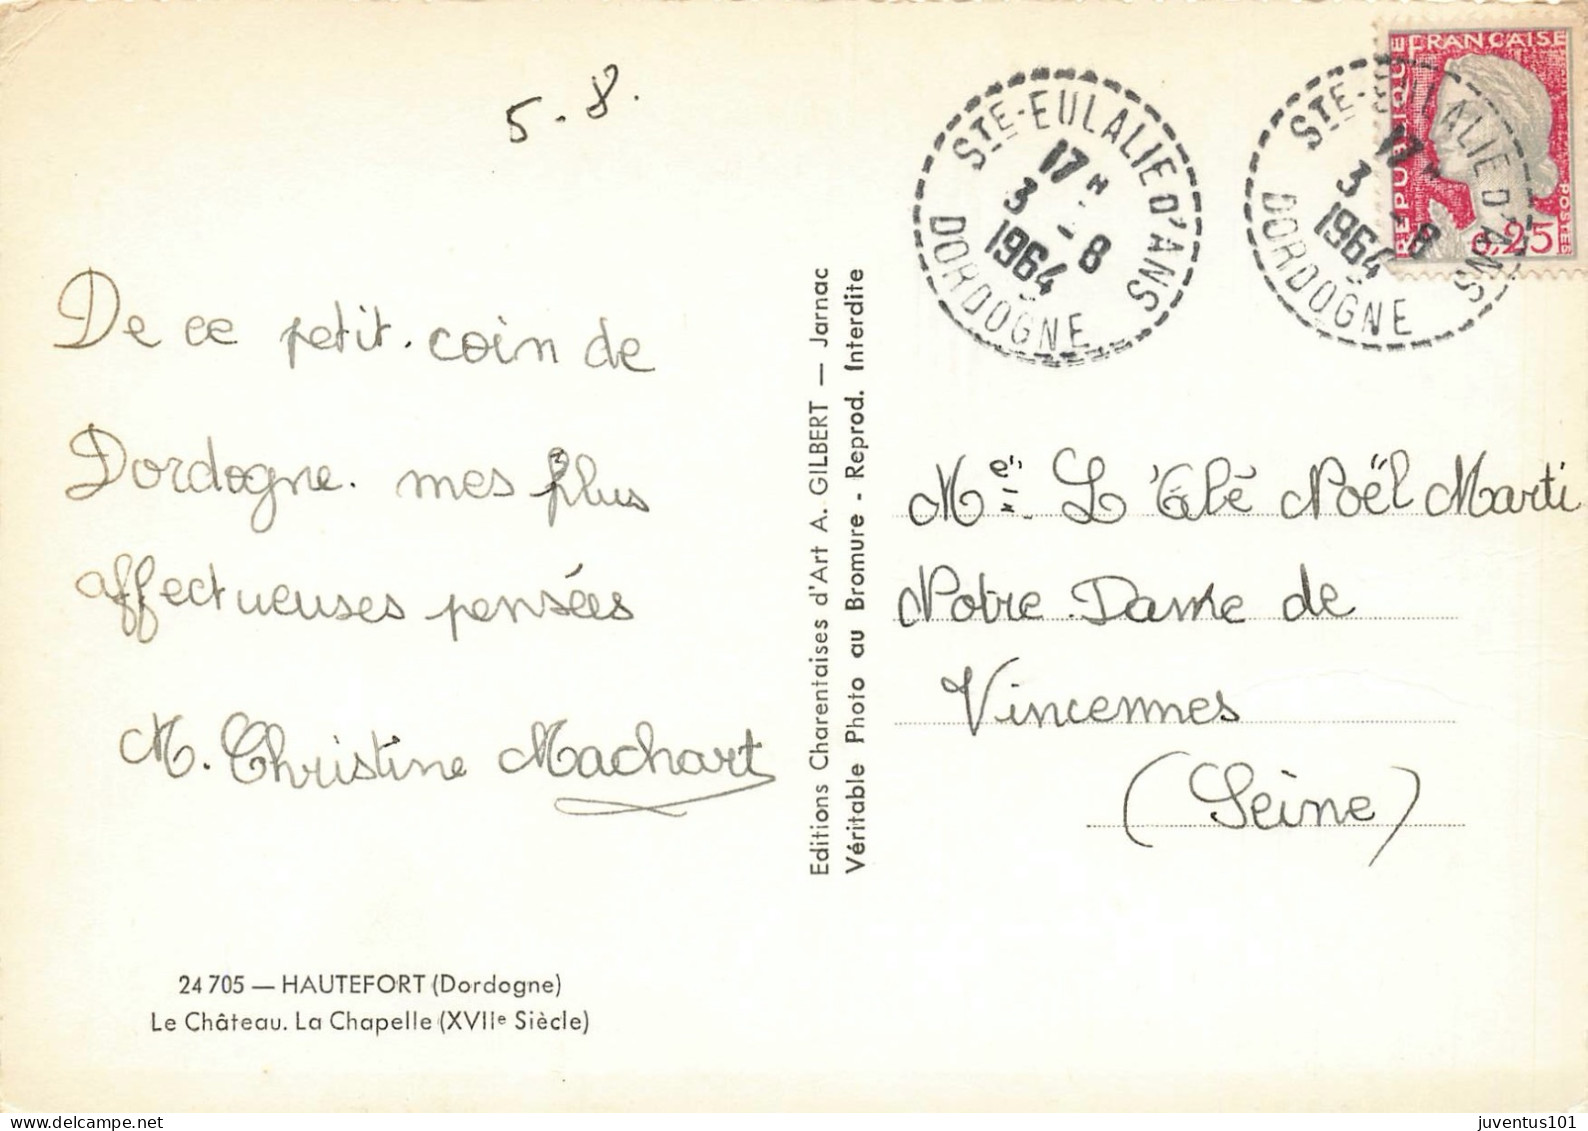 5-8.
De ce petit. coin de
Dordogne. mes plus
affectueuses pensées
M. Christine Machart
24 705 — HAUTEFORT (Dordogne)
Le Château. La Chapelle (XVIIe Siècle)
Editions Charentaises d'Art A. GILBERT — Jarnac
Véritable Photo au Bromure - Reprod. Interdite
STE-EULALIE D'ANS
17 H
3 - 8
1964
DORDOGNE
STE-EULALIE D'ANS
17 H
3 - 8
1964
DORDOGNE
REPUBLIQUE FRANCAISE
POSTES
0,25
L'Abbé Noël Marti
Notre Dame de
Vincennes
(Seine)
juventus101